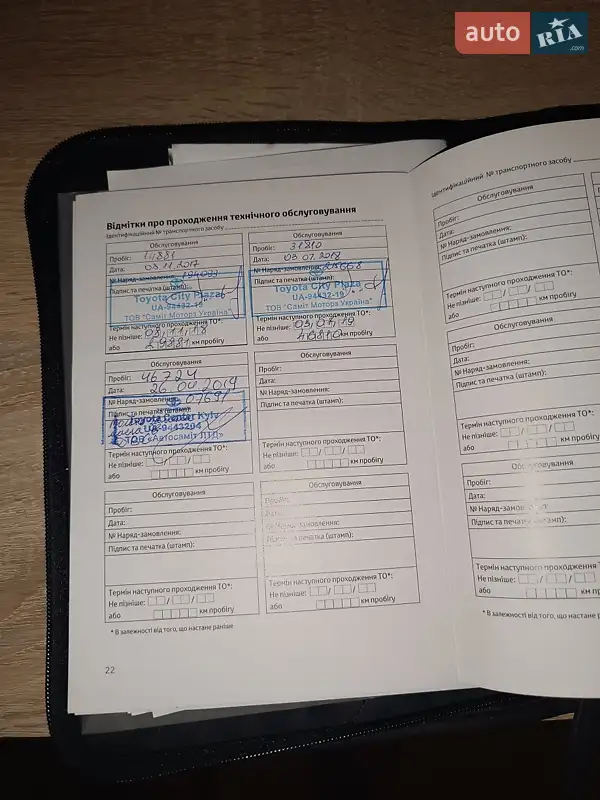 auto RIA.com
Відмітки про проходження технічного обслуговування
Ідентифікаційний № транспортного засобу
Обслуговування
Пробіг: 14881
Дата: 03.11.2017
№ Наряд-замовлення: 194093
Підпис та печатка (штамп):
Toyota City Plaza
UA-94432-19
ТОВ "Саміт Моторз Україна"
Термін наступного проходження ТО*:
Не пізніше: 03/11/18
або 29881 км пробігу
Обслуговування
Пробіг: 31810
Дата: 03.07.2018
№ Наряд-замовлення:
Підпис та печатка (штамп):
Toyota City Plaza
UA-94432-19
ТОВ "Саміт Моторз Україна"
Термін наступного проходження ТО*:
Не пізніше: 03/07/19
або 40810 км пробігу
Обслуговування
Пробіг: 46724
Дата: 26.04.2019
№ Наряд-замовлення: 07691
Підпис та печатка (штамп):
Toyota Center Kyiv
UA-9443204
ТОВ «Автосаміт ЛТД»
Термін наступного проходження ТО*:
Не пізніше:
або км пробігу
Обслуговування
Пробіг:
Дата:
№ Наряд-замовлення:
Підпис та печатка (штамп):
Термін наступного проходження ТО*:
Не пізніше:
або км пробігу
Обслуговування
Пробіг:
Дата:
№ Наряд-замовлення:
Підпис та печатка (штамп):
Термін наступного проходження ТО*:
Не пізніше:
або км пробігу
Обслуговування
Пробіг:
Дата:
№ Наряд-замовлення:
Підпис та печатка (штамп):
Термін наступного проходження ТО*:
Не пізніше:
або км пробігу
* В залежності від того, що настане раніше
22
Ідентифікаційний № транспортного засобу
Обслуговування
Пробіг:
Дата:
№ Наряд-замовлення:
Підпис та печатка (штамп):
Термін наступного проходження ТО*:
Не пізніше:
або км пробігу
Обслуговування
Пробіг:
Дата:
№ Наряд-замовлення:
Підпис та печатка (штамп):
Термін наступного проходження ТО*:
Не пізніше:
або км пробігу
Обслуговування
Пробіг:
Дата:
№ Наряд-замовлення:
Підпис та печатка (штамп):
Термін наступного проходження ТО*:
Не пізніше:
або км пробігу
* В залежності від того, що настане раніше